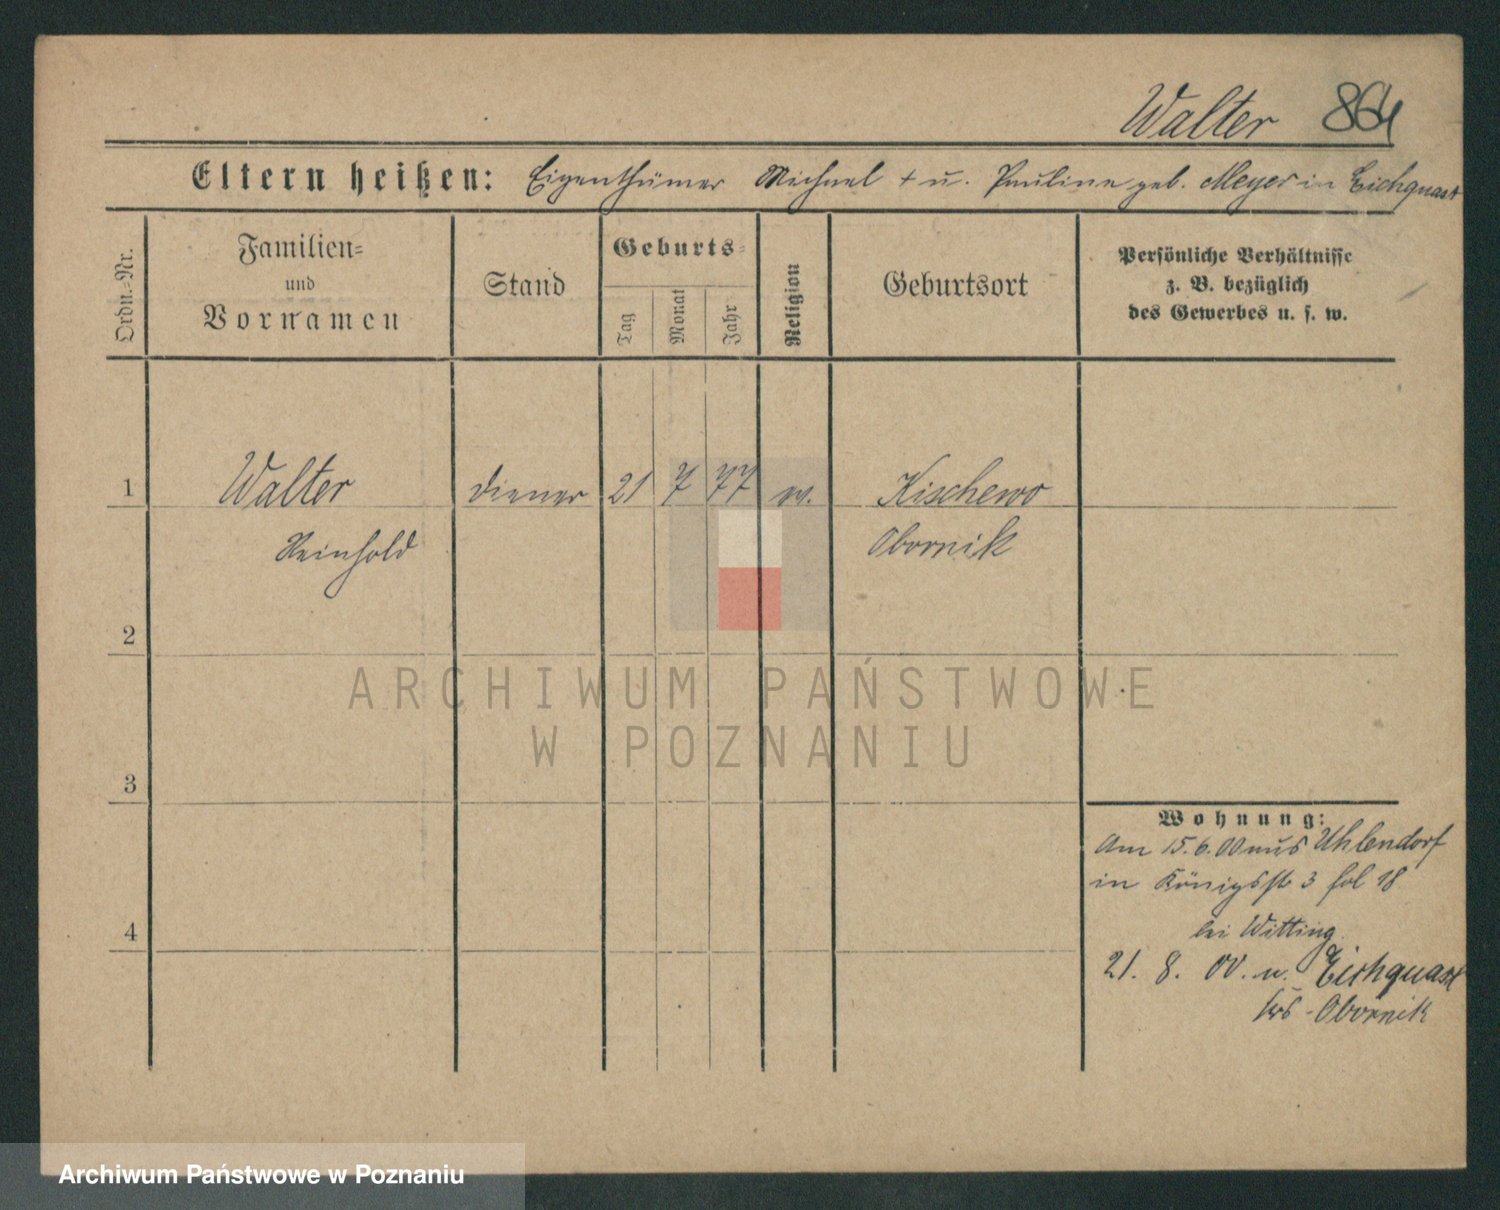 Walter 864
Eltern heißen: Eigenthümer Michael + u. Pauline geb. Meyer in Eichquast
Ordn.-Nr.
Familien-
und
Vornamen
Stand
Geburts-
Tag
Monat
Jahr
Religion
Geburtsort
Persönliche Verhältnisse
z. B. bezüglich
des Gewerbes u. s. w.
1 Walter Diener 21 7 77 ev. Kischewo
Reinhold Obornik
2
ARCHIWUM PAŃSTWOWE
W POZNANIU
3
Wohnung:
Am 15.6.00 aus Uhlendorf
in Königsstr 3 fol 18
bei Witting
4
21. 8. 00. n. Eichquast
Krs - Obornik
Archiwum Państwowe w Poznaniu